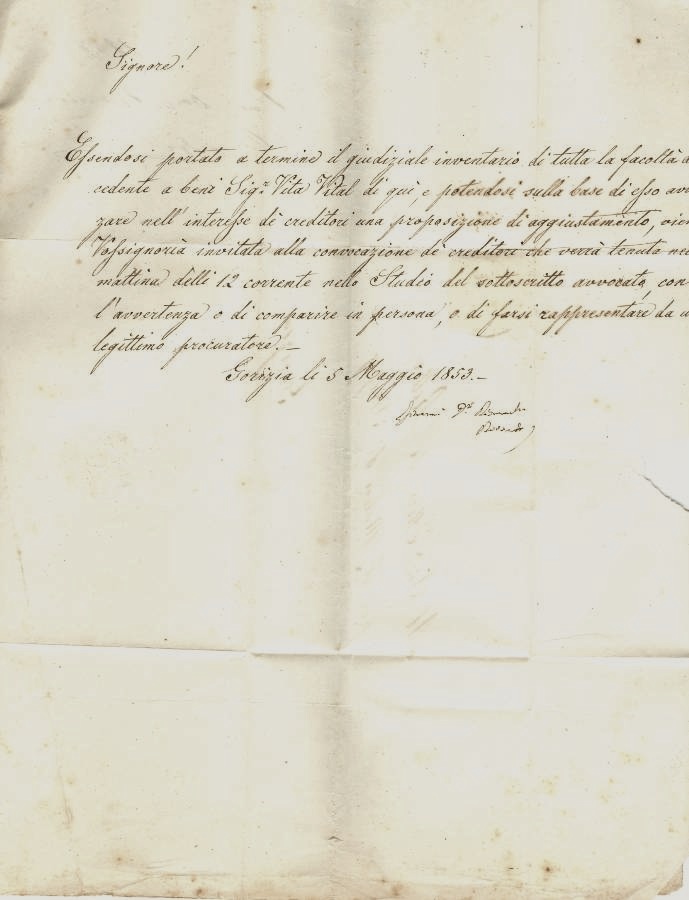 Signore!
Essendosi portato a termine il giudiziale inventario di tutta la facoltà d
cedente a beni Sigr. Vita Vital di qui, e potendosi sulla base di esso avan
zare nell' interesse di creditori una proposizione di aggiustamento, vien
Vossignoria invitata alla convocazione de creditori che verrà tenuta nel
mattina delli 12 corrente nello Studio del sottoscritto avvocato, con
l'avvertenza o di comparire in persona, o di farsi rappresentare da u
legittimo procuratore.—
Gorizia li 5 Maggio 1853.—
Dr.